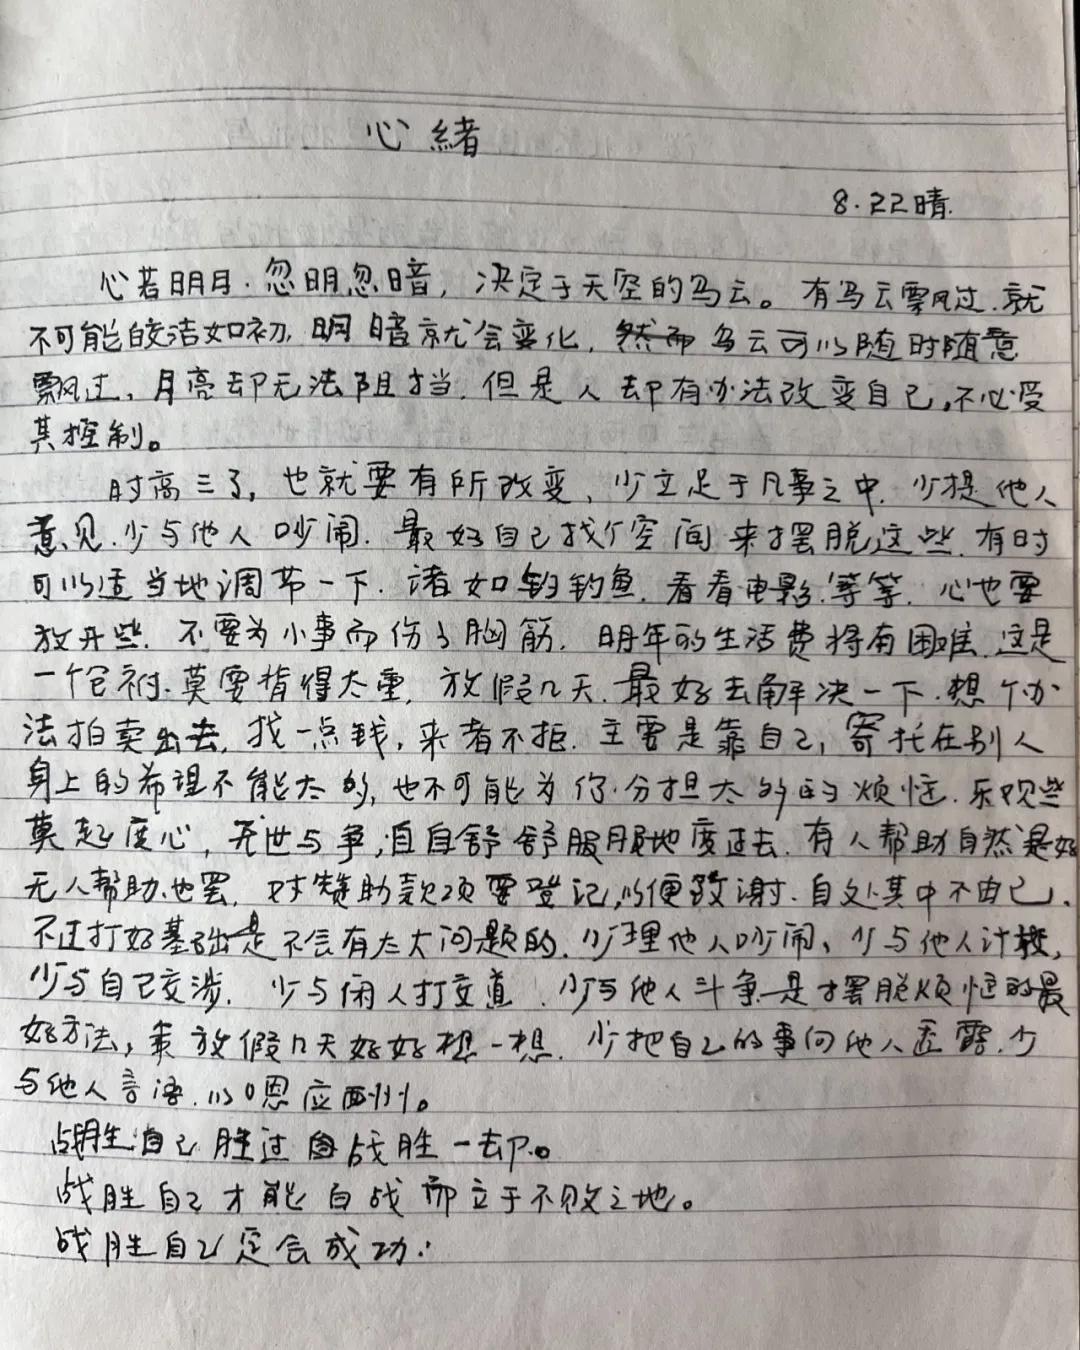 心緒
8.22晴.
心若明月.忽明忽暗，决定于天空的乌云。有乌云飘过.就
不可能皎洁如初,明暗就会变化.然而乌云可以随时随意
飘过,月亮却无法阻挡.但是人却有办法改变自己,不必受
其控制。
时高三了,也就要有所改变、少立足于凡事之中.少提他人
意见.少与他人吵闹.最好自己找个空间来摆脱这些.有时
可以适当地调节一下.诸如钓钓鱼.看看电影.等等.心也要
放开些.不要为小事而伤了胸筋.明年的生活费将有困难.这是
一个包袱.莫要背得太重.放假几天.最好去解决一下.想个办
法拍卖出去,找一点钱,来者不拒.主要是靠自己,寄托在别人
身上的希望不能太多,也不可能为你分担太多的烦恼.乐观些
莫起度心,无世与争,自自舒舒服服地度过去.有人帮助自然是好
无人帮助也罢.对赞助款项要登记,以便致谢.自处其中不由己.
不过打好基础是不会有太大问题的.少理他人吵闹、少与他人计较,
少与自己交涉.少与闲人打交道.少与他人斗争是摆脱烦恼的最
好方法,乘放假几天好好想一想.少把自己的事向他人透露.少
与他人言语.以嗯应酬。
战胜自己胜过战胜一切。
战胜自己才能百战而立于不败之地。
战胜自己定会成功.